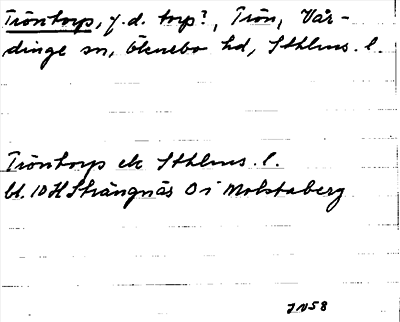 Tröntorp, f.d. torp?, Trön, Vår-
dinge sn, Öknebo hd, Sthlms. l.
Tröntorp ek Sthlms. l.
bl. 10H Strängnäs O i Molstaberg
JN58